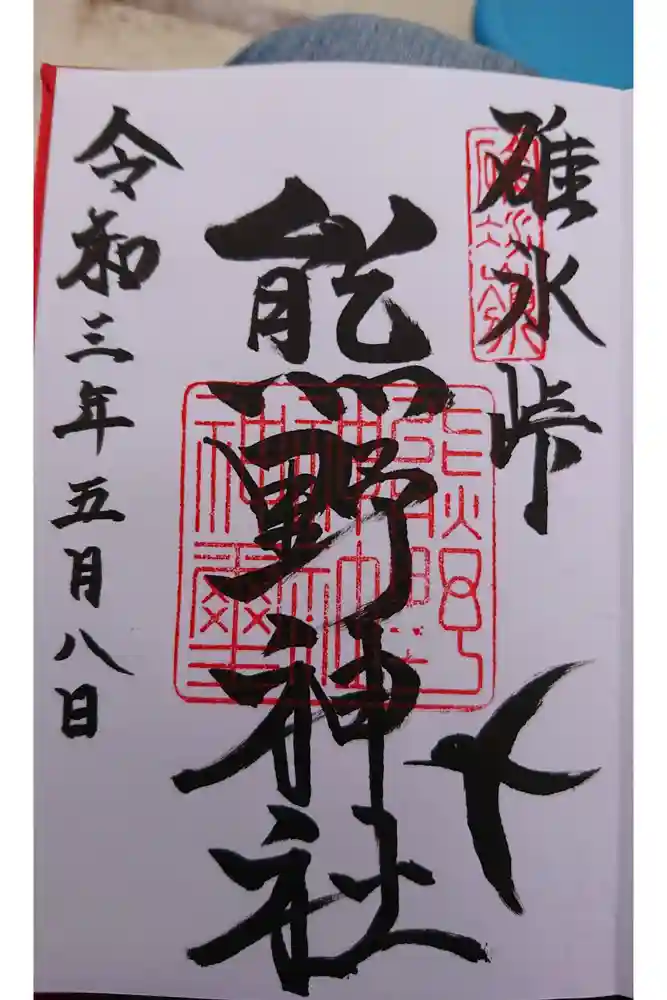 碓氷峠
熊野神社
令和三年五月八日